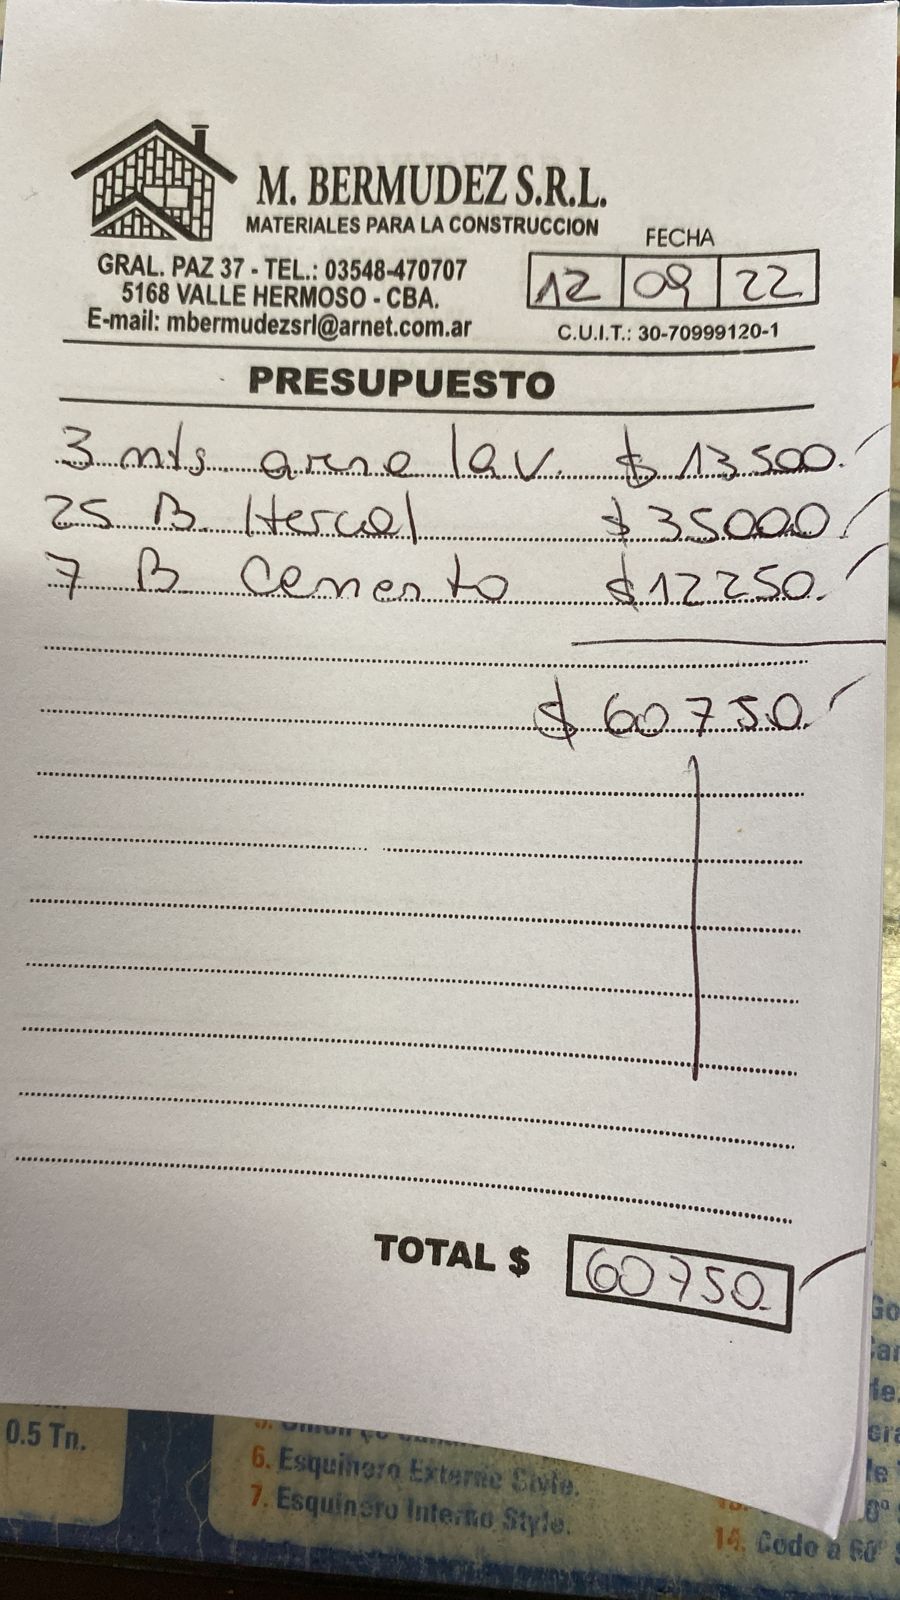 M. BERMUDEZ S.R.L.
MATERIALES PARA LA CONSTRUCCION
GRAL. PAZ 37 - TEL.: 03548-470707
5168 VALLE HERMOSO - CBA.
E-mail: mbermudezsrl@arnet.com.ar
FECHA
12 09 22
C.U.I.T.: 30-70999120-1
PRESUPUESTO
3 mts arena lav. $ 13500.
25 B. Hercal $ 35000
7 B Cemento $ 12250.
$ 60750.
TOTAL $ 60750.
0.5 Tn.
6. Esquinero Externo Style.
7. Esquinero Interno Style.
14. Codo a 60° S